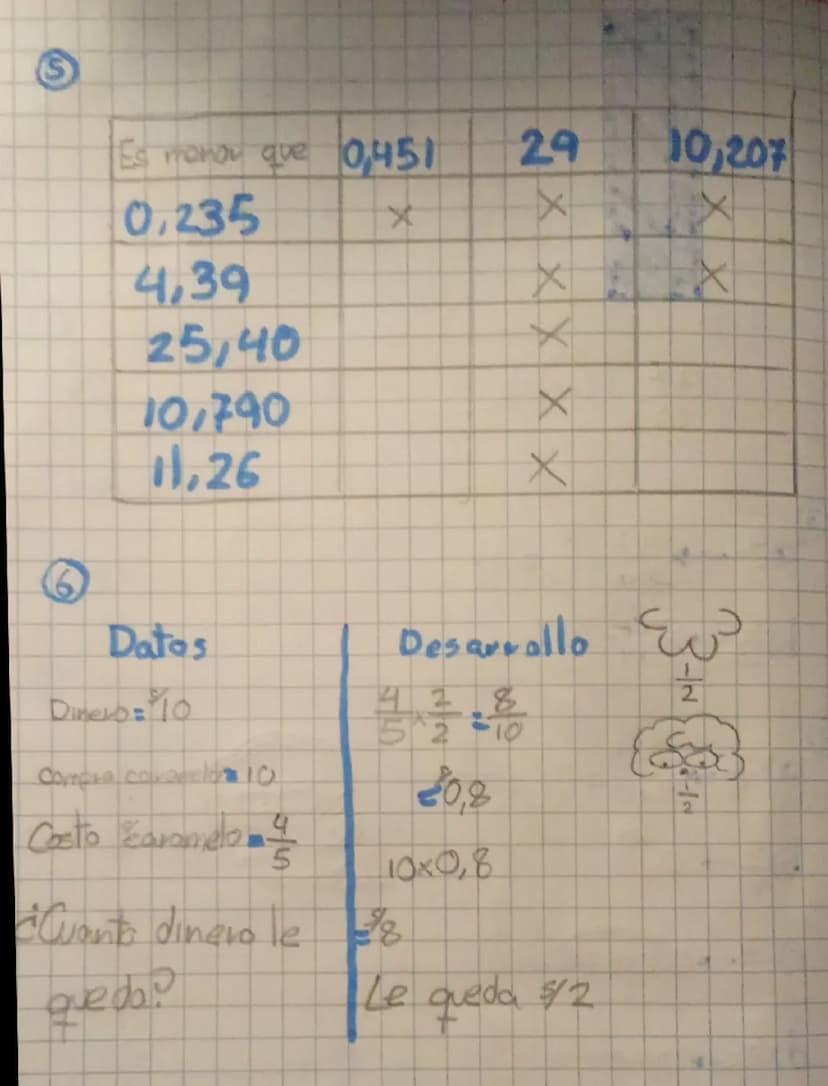 5
Es menor que 0,451 29 10,207
0,235 × × ×
4,39 × ×
25,40 ×
10,790 ×
11,26 ×
6
Datos
Dinero = $/10
Compra caramelo = 10
Costo caramelo = 4/5
¿Cuanto dinero le
queda?
Desarrollo
4/5 × 2/2 = 8/10
= 0,8
10x0,8
= $/8
Le queda $/2
1/2
1/2